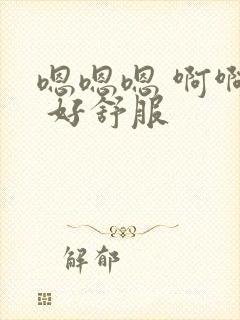 嗯嗯嗯 啊啊
好舒服
解郁